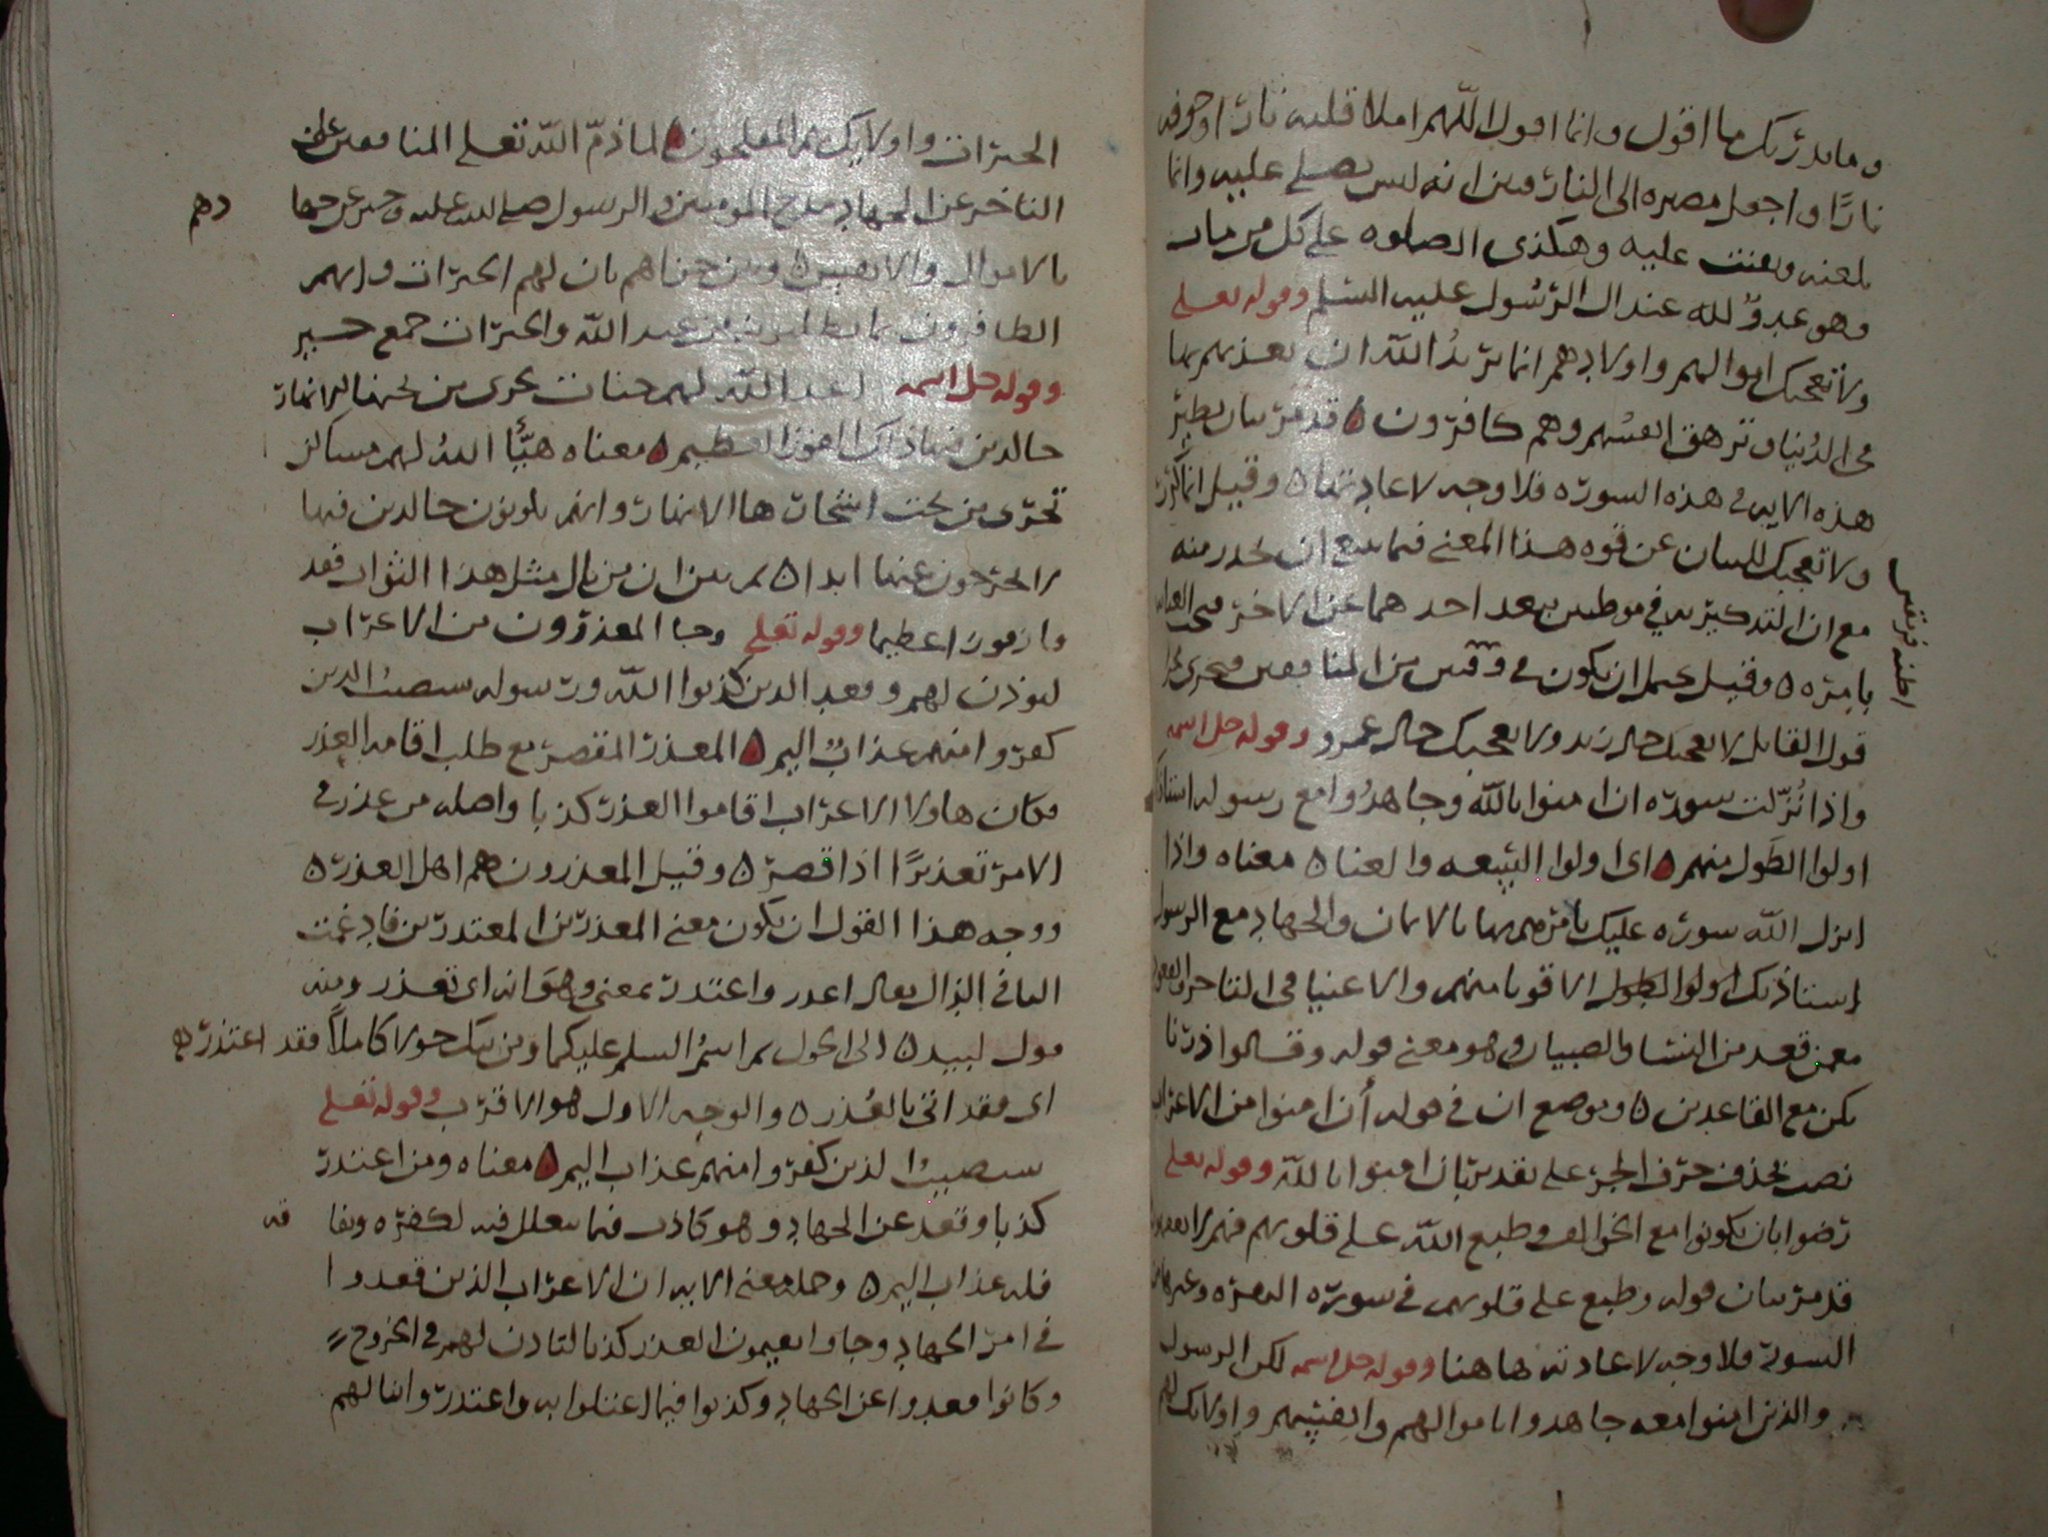 وما يدريك ما اقول وانما اقول اللهم املا قلبه نارا وجوفه
نارا واجعل مصيره الى النار فبين انه ليس يصلي عليه وانما
يلعنه ويقنت عليه وهكذى الصلوه على كل من مات
وهو عدو لله عند ال الرسول عليه السلم وقوله تعلى
ولا تعجبك اموالهم واولادهم انما يريد الله ان يعذبهم بها
في الدنيا وتزهق انفسهم وهم كافرون ٥ قد مر بيان نظير
هذه الايه في هذه السوره فلا وجه لاعادتها ٥ وقيل انما كرر
ولا تعجبك للبيان عن قوه هذا المعنى فيما ينبغي ان يحذر منه
مع ان التذكير به في موطنين بعد احدهما عن الاخر
يامره ٥ وقيل يحتمل ان يكون في وقتين من المنافقين فيجري
اظنه فريقين
قول القايل لا يعجبك حال زيد ولا يعجبك حال عمرو وقوله جل اسمه
واذا نزلت سوره ان امنوا بالله وجاهدوا مع رسوله استاذنك
اولوا الطول منهم ٥ اى اولوا السعه والغنا ٥ معناه واذا
انزل الله سوره عليك يامرهم بها بالايمان والجهاد مع الرسول
استاذنك اولوا الطول الاقويا منهم والاغنيا في التاخر
ممن قعد من النسا والصبيان وهو معنى قوله وقالوا ذرنا
نكن مع القاعدين ٥ وموضع ان في قوله أن امنوا من الاعراب
نصب بحذف حرف الجر على تقدير بان امنوا بالله وقوله تعلى
رضوا بان يكونوا مع الخوالف وطبع الله على قلوبهم فهم لا يعلمون
قد مر بيان قوله وطبع على قلوبهم في سوره البقره وغيرها من
السور فلا وجه لاعادته هاهنا وقوله جل اسمه لكن الرسول
والذين امنوا معه جاهدوا باموالهم وانفسهم واولايك لهم
الخيرات واولايك هم المفلحون ٥ لما ذم الله تعلى المنافقين على
التاخر عن الجهاد مدح المومنين والرسول صلى الله عليه
دهم
بالاموال والانفس ٥ وبين جزاهم بان لهم الخيرات وانهم
الظافرون بما يطلبونه من عند الله والخيرات جمع خير
وقوله جل اسمه اعد الله لهم جنات تجرى من تحتها الانهار
خالدين فيها ذلك الفوز العظيم ٥ معناه هيأ الله لهم مساكن
تجرى من تحت اشجارها الانهار وانهم يكونون خالدين فيها
لا يخرجون عنها ابدا ٥ ثم بين ان من نال مثل هذا الثواب فقد
فاز فوزا عظيما وقوله تعلى وجا المعذرون من الاعراب
ليوذن لهم وقعد الذين كذبوا الله ورسوله سيصيب الذين
كفروا منهم عذاب اليم ٥ المعذر المقصر مع طلب اقامه العذر
فكان هاولا الاعراب اقاموا العذر كذبا واصله من عذر في
الامر تعذيرا اذا قصر ٥ وقيل المعذرون هم اهل العذر ٥
ووجه هذا القول ان يكون معنى المعذرين المعتذرين فادغمت
التا في الذال يقال اعذر واعتذر بمعنى وهو انه اى تعذر ومنه
قول لبيد ٥ الى الحول ثم اسم السلم عليكما ومن يبك حولا كاملا فقد اعتذر ٥
اى فقد اتى بالعذر ٥ والوجه الاول هو الاقرب وقوله تعلى
سيصيب الذين كفروا منهم عذاب اليم ٥ معناه ومن اعتذر
كذبا وقعد عن الجهاد وهو كاذب فيما يتعلل فيه لكفره ونفا
قه
فله عذاب اليم ٥ وجمله معنى الايه ان الاعراب الذين قعدوا
في امر الجهاد وجاوا يقيمون العذر كذبا لتاذن لهم في الخروج
وكانوا قعدوا عن الجهاد وكذبوا فيما اعتلوا به واعتذر واتى لهم